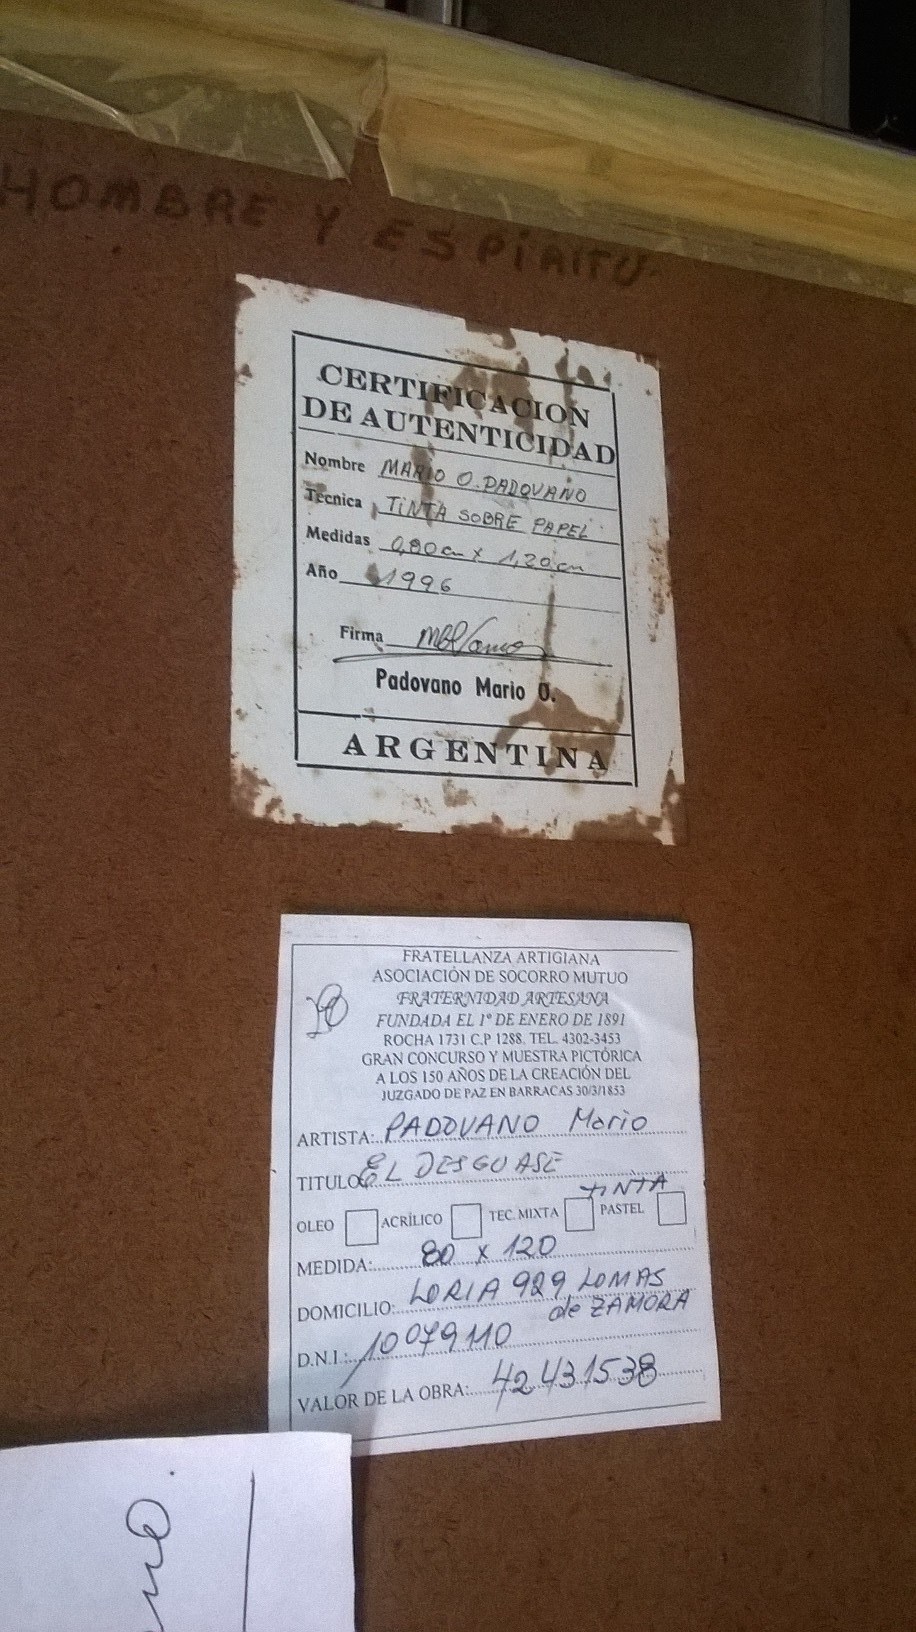 HOMBRE Y ESPIRITU
CERTIFICACION
DE AUTENTICIDAD
Nombre MARIO O. PADOVANO
Tecnica TINTA SOBRE PAPEL
Medidas 0,80 cm x 1,20 cm
Año 1996
Firma
Padovano Mario O.
ARGENTINA
FRATELLANZA ARTIGIANA
ASOCIACIÓN DE SOCORRO MUTUO
FRATERNIDAD ARTESANA
FUNDADA EL 1º DE ENERO DE 1891
ROCHA 1731 C.P 1288. TEL. 4302-3453
GRAN CONCURSO Y MUESTRA PICTÓRICA
A LOS 150 AÑOS DE LA CREACIÓN DEL
JUZGADO DE PAZ EN BARRACAS 30/3/1853
ARTISTA: PADOVANO Mario
TITULO EL DESGUASE
TINTA
OLEO ACRÍLICO TEC. MIXTA PASTEL
MEDIDA: 80 x 120
DOMICILIO: LORIA 929 LOMAS
de ZAMORA
D.N.I.: 10079110
VALOR DE LA OBRA: 42431538